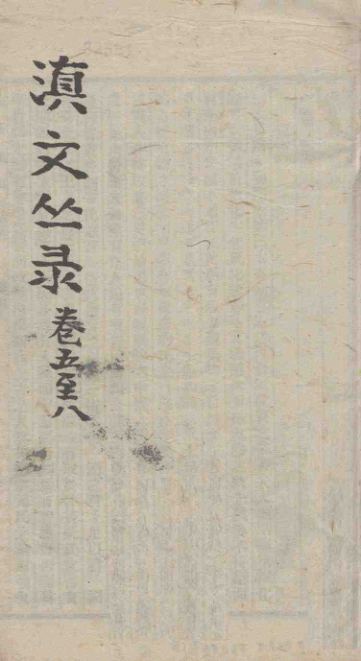 滇文丛录卷五至八